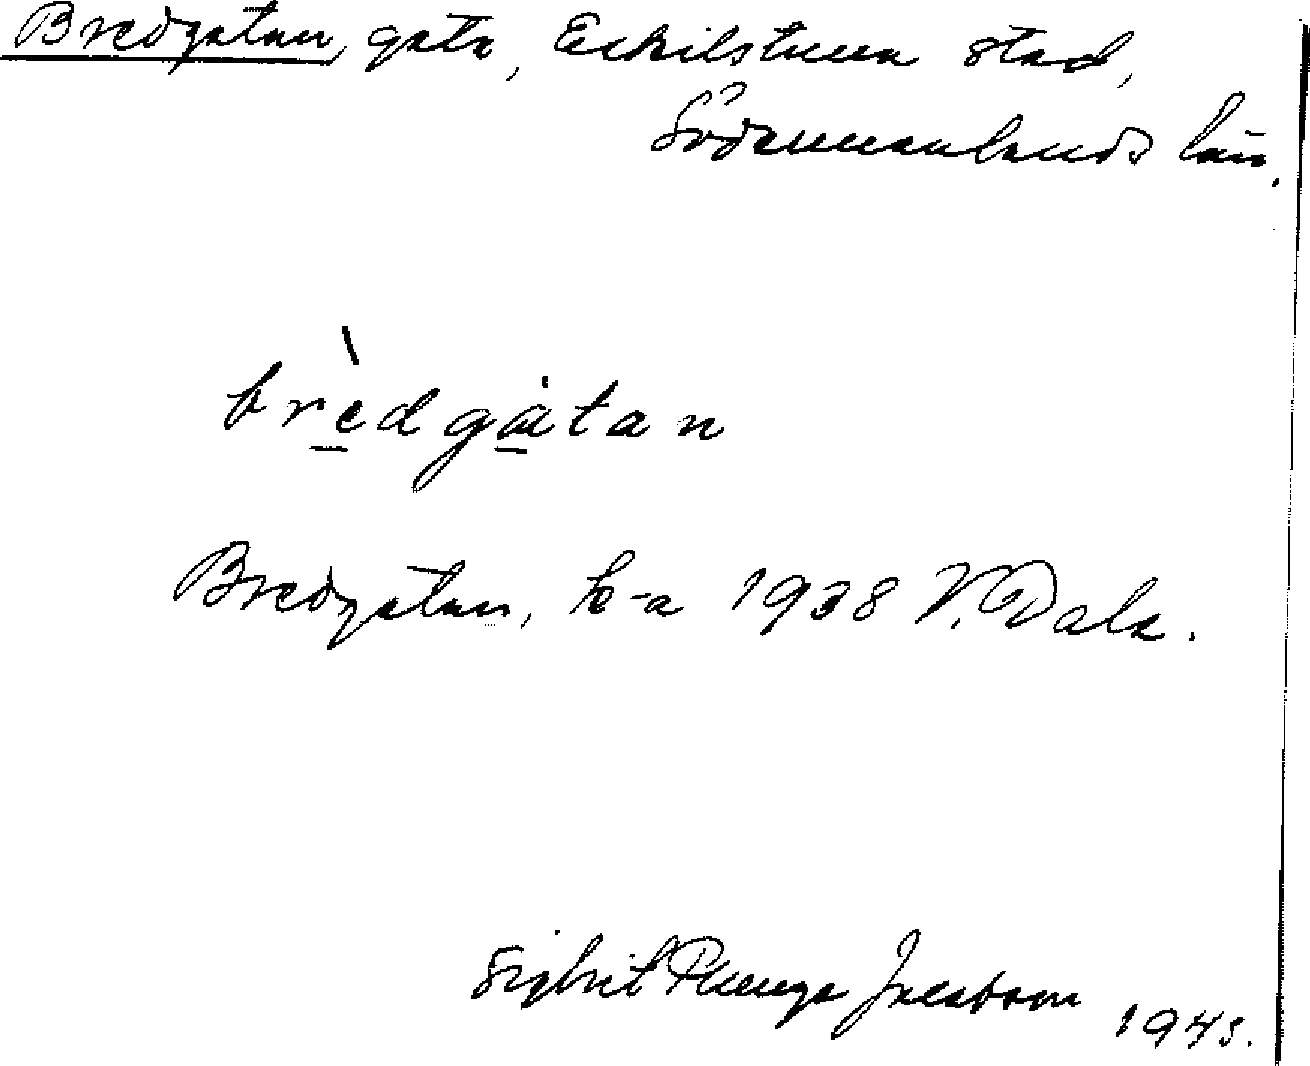 Bredgatan, gata, Eskilstuna stad,
Södermanlands län.
brèdgàtan
Bredgatan, k-a 1938 V. Dala.
Sigbrit Plænge Jacobson 1945.